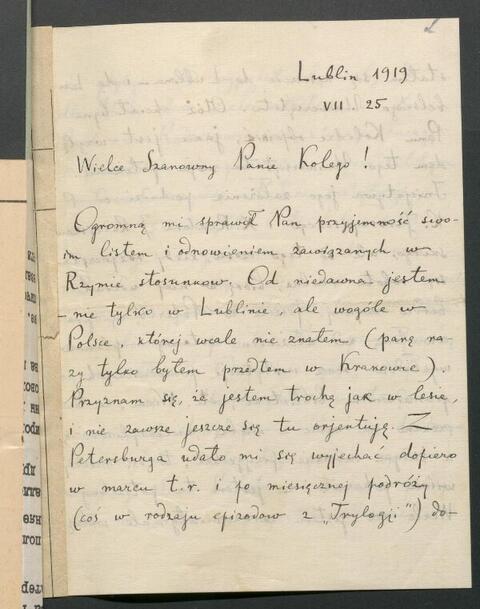 Lublin 1919
VII. 25
Wielce Szanowny Panie Kolego!
Ogromną mi sprawił Pan przyjemność swo-
im listem i odnowieniem zawiązanych w
Rzymie stosunków. Od niedawna jestem
- nie tylko w Lublinie, ale wogóle w
Polsce, której wcale nie znałem (parę ra-
zy tylko byłem przedtem w Krakowie).
Przyznam się, że jestem trochę jak w lesie,
i nie zawsze jeszcze się tu orjentuję. Z
Petersburga udało mi się wyjechać dopiero
w marcu t.r. i po miesięcznej podróży
(coś w rodzaju epizodów z „Trylogji") do-